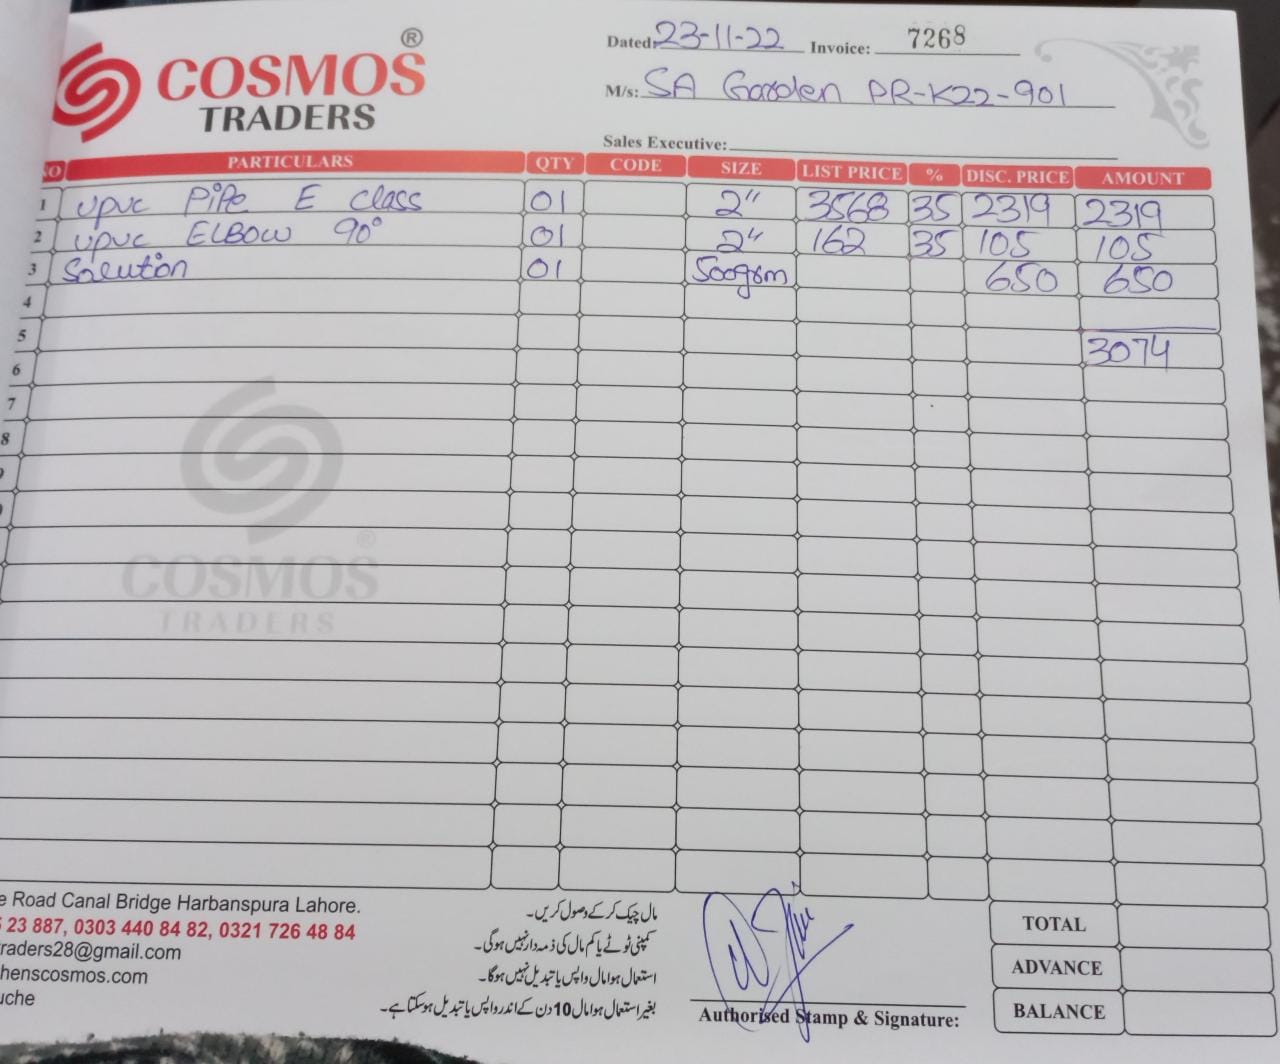 COSMOS®
TRADERS
Dated: 23-11-22 Invoice: 7268
M/s: SA Garden PR-K22-901
Sales Executive:
NO PARTICULARS QTY CODE SIZE LIST PRICE % DISC. PRICE AMOUNT
1 upvc PiPe E Class 01 2" 3568 35 2319 2319
2 upvc ELBOW 90° 01 2" 162 35 105 105
3 Solution 01 500grm 650 650
4
5
3074
6
7
8
COSMOS®
TRADERS
e Road Canal Bridge Harbanspura Lahore.
23 887, 0303 440 84 82, 0321 726 48 84
raders28@gmail.com
henscosmos.com
uche
مال چیک کر کے وصول کریں۔
کمپنی ٹوٹے یا کم مال کی ذمہ دار نہیں ہوگی۔
استعمال ہوا مال واپس یا تبدیل نہیں ہوگا۔
بغیر استعمال ہوا مال 10 دن کے اندر واپس یا تبدیل ہو سکتا ہے۔
Authorised Stamp & Signature:
TOTAL
ADVANCE
BALANCE